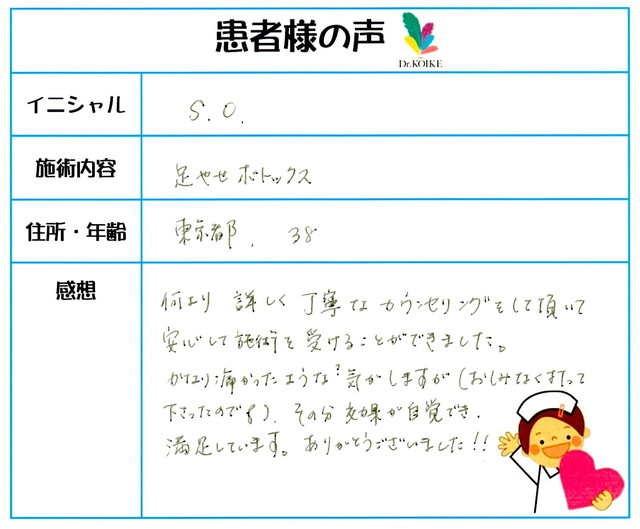 患者様の声
Dr.KOIKE
イニシャル
S.O.
施術内容
足やせボトックス
住所・年齢
東京都. 38
感想
何より 詳しく 丁寧な カウンセリングをして頂いて
安心して施術を受けることができました。
かなり痛かったような?気がしますが(おしみなく打って
下さったのです)、その分 効果が自覚でき.
満足しています。ありがとうございました!!